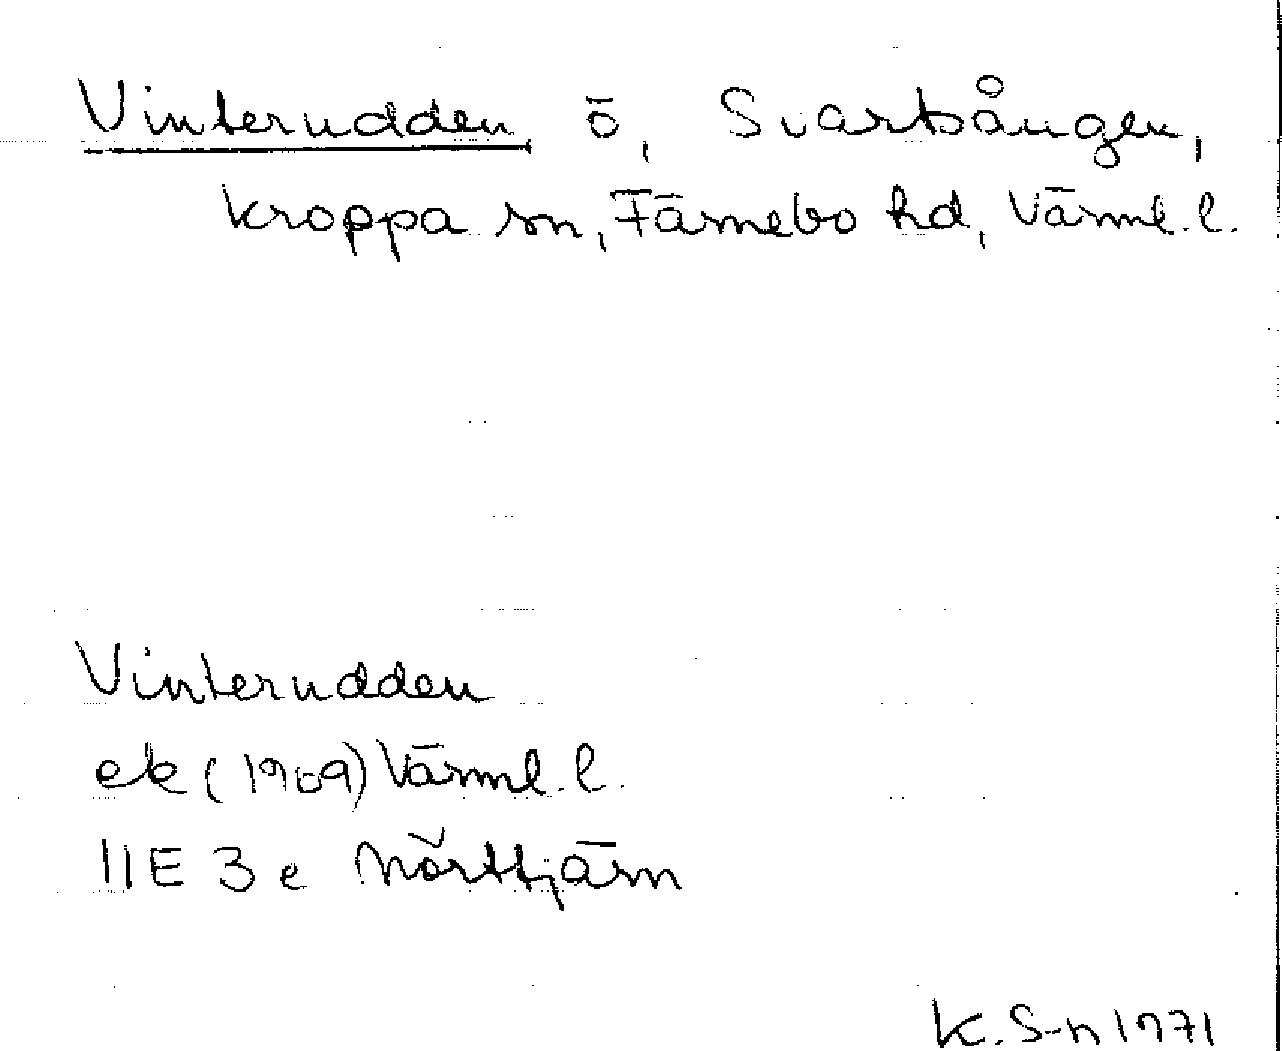 Vinterudden ö, Svartsången,
Kroppa sn, Färnebo hd, Värml. l.
Vinterudden
ek (1969) Värml. l.
11E 3e Mörttjärn
K. S-n 1971